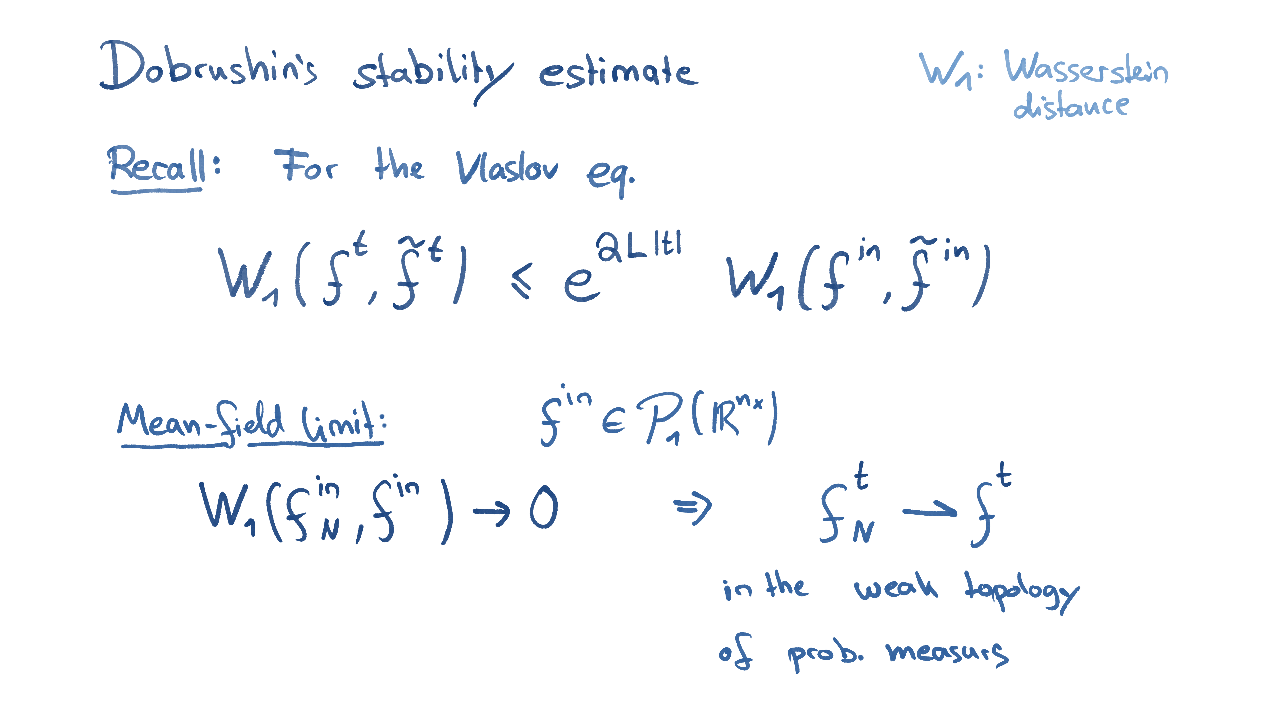 Dobrushin's stability estimate
W₁: Wasserstein
distance
Recall: For the Vlaslov eq.
W₁(f^t, f̃^t) ≤ e^{2L|t|} W₁(f^{in}, f̃^{in})
Mean-field limit: f^{in} ∈ P₁(ℝ^{n_x})
W₁(f_N^{in}, f^{in}) → 0 ⇒ f_N^t → f^t
in the weak topology
of prob. measurs